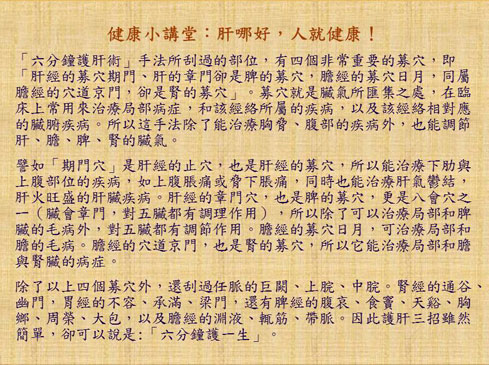 健康小講堂：肝哪好，人就健康！
「六分鐘護肝術」手法所刮過的部位，有四個非常重要的募穴，即
「肝經的募穴期門、肝的章門卻是脾的募穴，膽經的募穴日月，同屬
膽經的穴道京門，卻是腎的募穴」。募穴就是臟氣所匯集之處，在臨
床上常用來治療局部病症，和該經絡所屬的疾病，以及該經絡相對應
的臟腑疾病。所以這手法除了能治療胸脅、腹部的疾病外，也能調節
肝、膽、脾、腎的臟氣。
譬如「期門穴」是肝經的止穴，也是肝經的募穴，所以能治療下肋與
上腹部位的疾病，如上腹脹痛或脅下脹痛，同時也能治療肝氣鬱結，
肝火旺盛的肝臟疾病。肝經的章門穴，也是脾的募穴，更是八會穴之
一（臟會章門，對五臟都有調理作用），所以除了可以治療局部和脾
臟的毛病外，對五臟都有調節作用。膽經的募穴日月，可治療局部和
膽的毛病。膽經的穴道京門，也是腎的募穴，所以它能治療局部和膽
與腎臟的病症。
除了以上四個募穴外，還刮過任脈的巨闕、上脘、中脘。腎經的通谷、
幽門，胃經的不容、承滿、梁門，還有脾經的腹哀、食竇、天谿、胸
鄉、周榮、大包，以及膽經的淵液、輒筋、帶脈。因此護肝三招雖然
簡單，卻可以說是：「六分鐘護一生」。